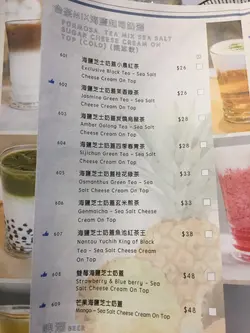 FORMOSA TEA MIX SEA SALT
SUGAR CHEESE CREAM ON
TOP (COLD)
601
海鹽芝士奶蓋小農紅茶 $26
Exclusive Black Tea - Sea Salt
Cheese Cream On Top
海鹽芝士奶蓋茉香綠茶 $26
Jasmine Green Tea - Sea Salt
Cheese Cream On Top
603
海鹽芝士奶蓋炭燒烏龍茶
Amber Oolong Tea - Sea Salt
Cheese Cream On Top
604
海鹽芝士奶蓋四季春青茶
Sijichun Green Tea - Sea Salt
Cheese Cream On Top
605
海鹽芝士奶蓋桂花綠茶 $33
Osmanthus Green Tea - Sea
Salt Cheese Cream On Top
606
海鹽芝士奶蓋玄米煎茶 $33
Genmaicha - Sea Salt Cheese
Cream On Top
607
海鹽芝士奶蓋魚池紅茶王 $38
Nantou Yuchih King of Black
Tea - Sea Salt Cheese Cream
On Top
608
雙莓海鹽芝士奶蓋 $48
Strawberry & Blue berry - Sea
Salt Cheese Cream On Top
609
芒果海鹽芝士奶蓋 $48
Mango - Sea Salt Cheese Cream
On Top